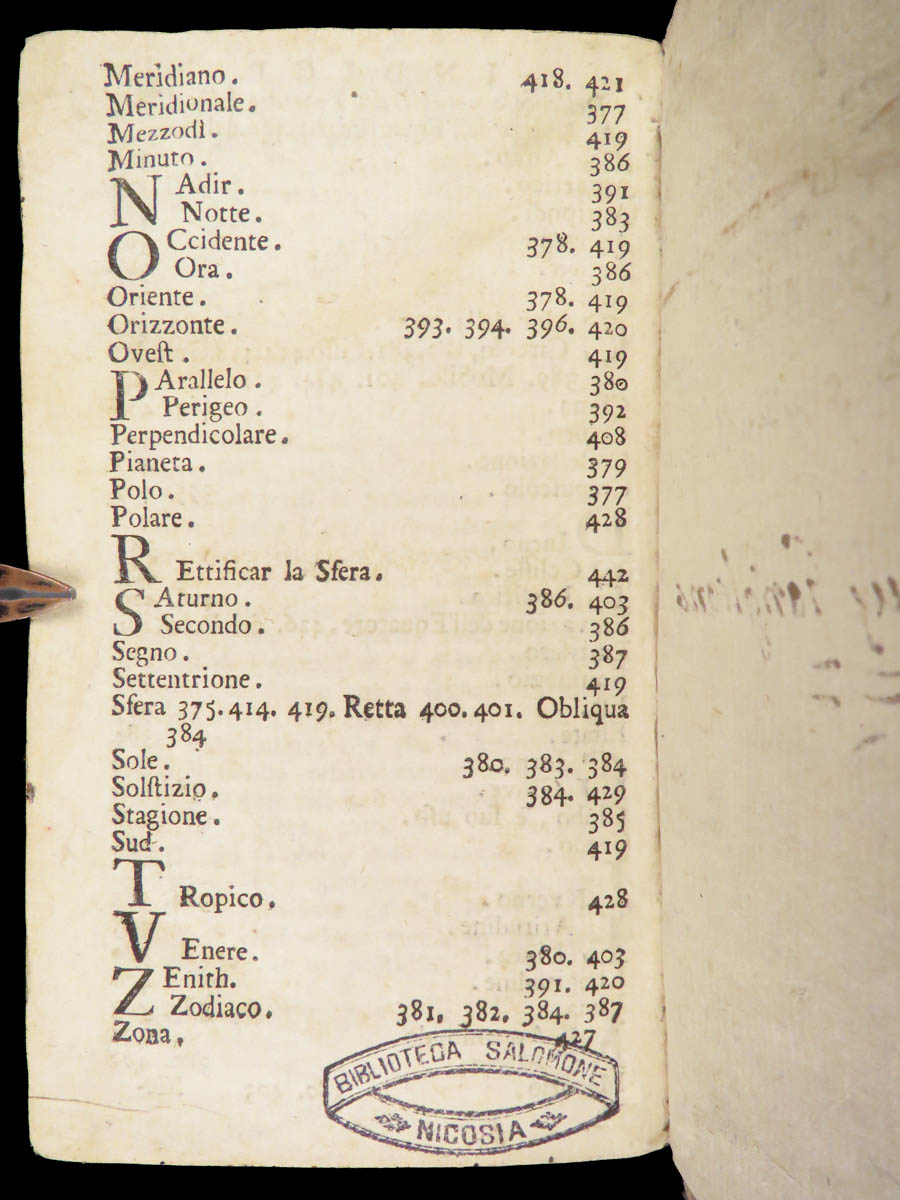 Meridiano. 418. 421
Meridionale. 377
Mezzodì. 419
Minuto. 386
NAdir. 391
Notte. 383
OCcidente. 378. 419
Ora. 386
Oriente. 378. 419
Orizzonte. 393. 394. 396. 420
Oveſt. 419
PArallelo. 380
Perigeo. 392
Perpendicolare. 408
Pianeta. 379
Polo. 377
Polare. 428
REttificar la Sfera. 442
SAturno. 386. 403
Secondo. 386
Segno. 387
Settentrione. 419
Sfera 375. 414. 419. Retta 400. 401. Obliqua
384
Sole. 380. 383. 384
Solſtizio. 384. 429
Stagione. 385
Sud. 419
TRopico. 428
VEnere. 380. 403
ZEnith. 391. 420
Zodiaco. 381. 382. 384. 387
Zona. 427
BIBLIOTECA SALOMONE
NICOSIA